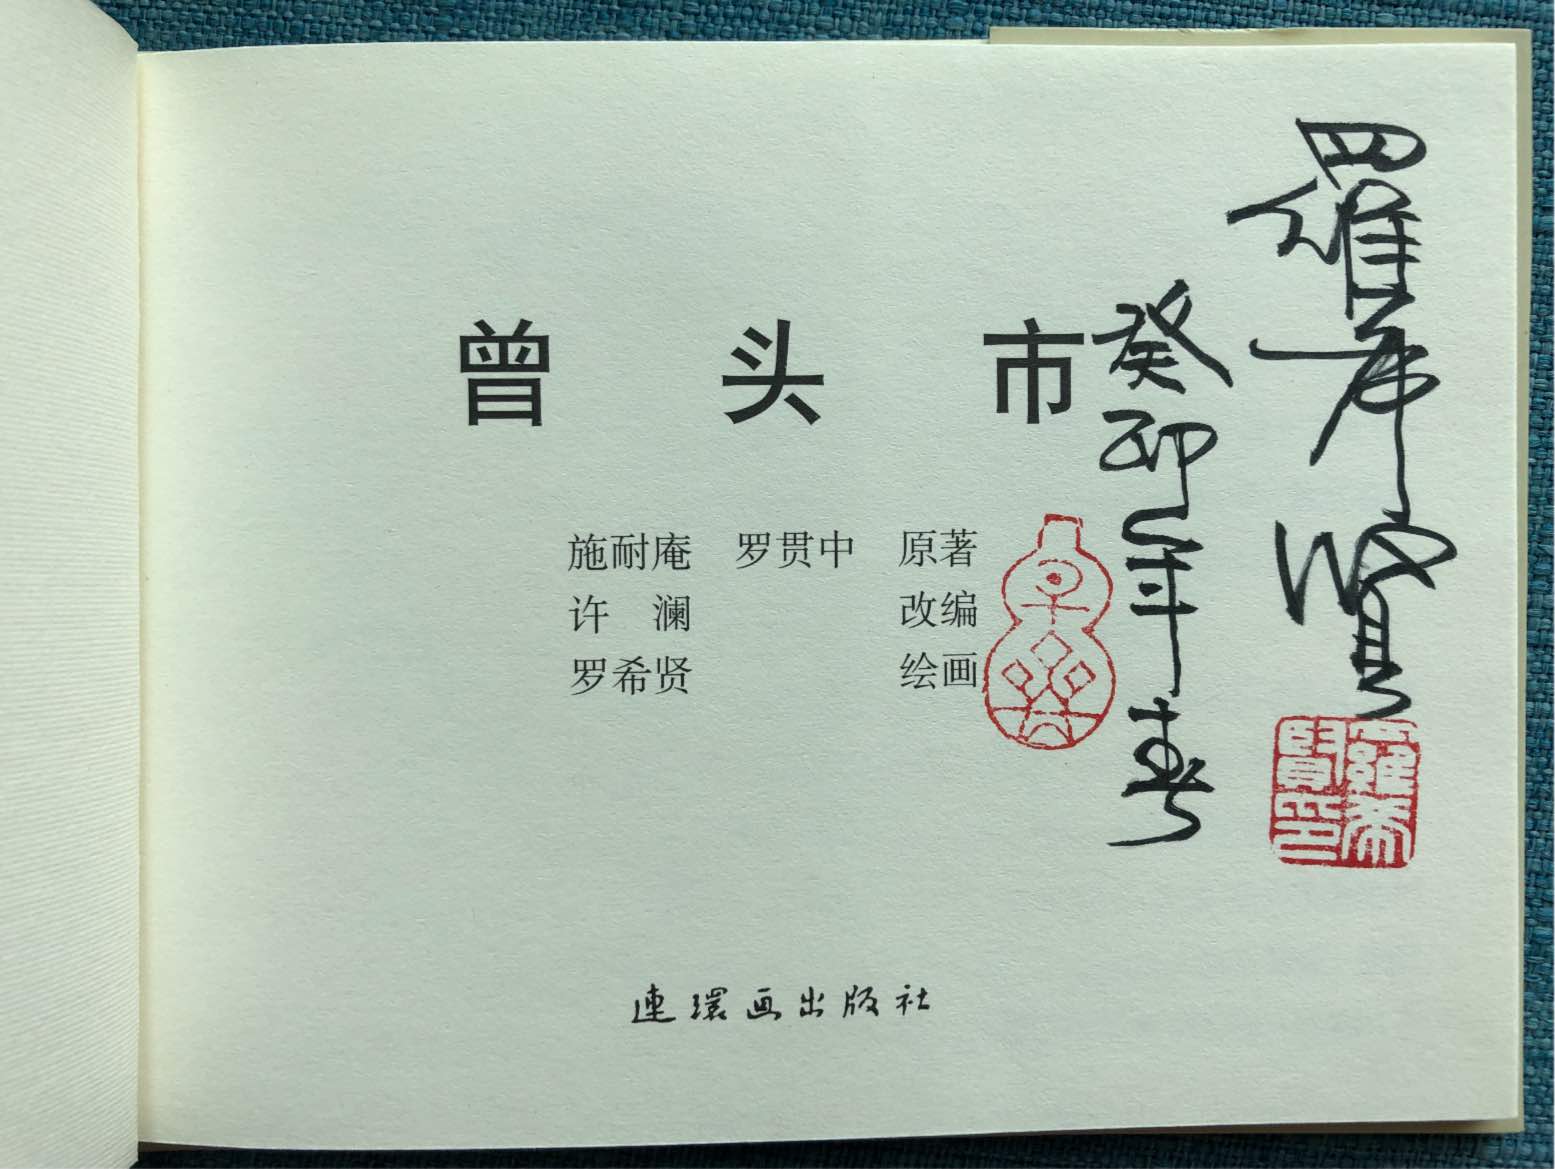 曾头市
施耐庵 罗贯中 原著
许 澜 改编
罗希贤 绘画
連環画出版社
羅希賢
癸卯年春
羅希賢印